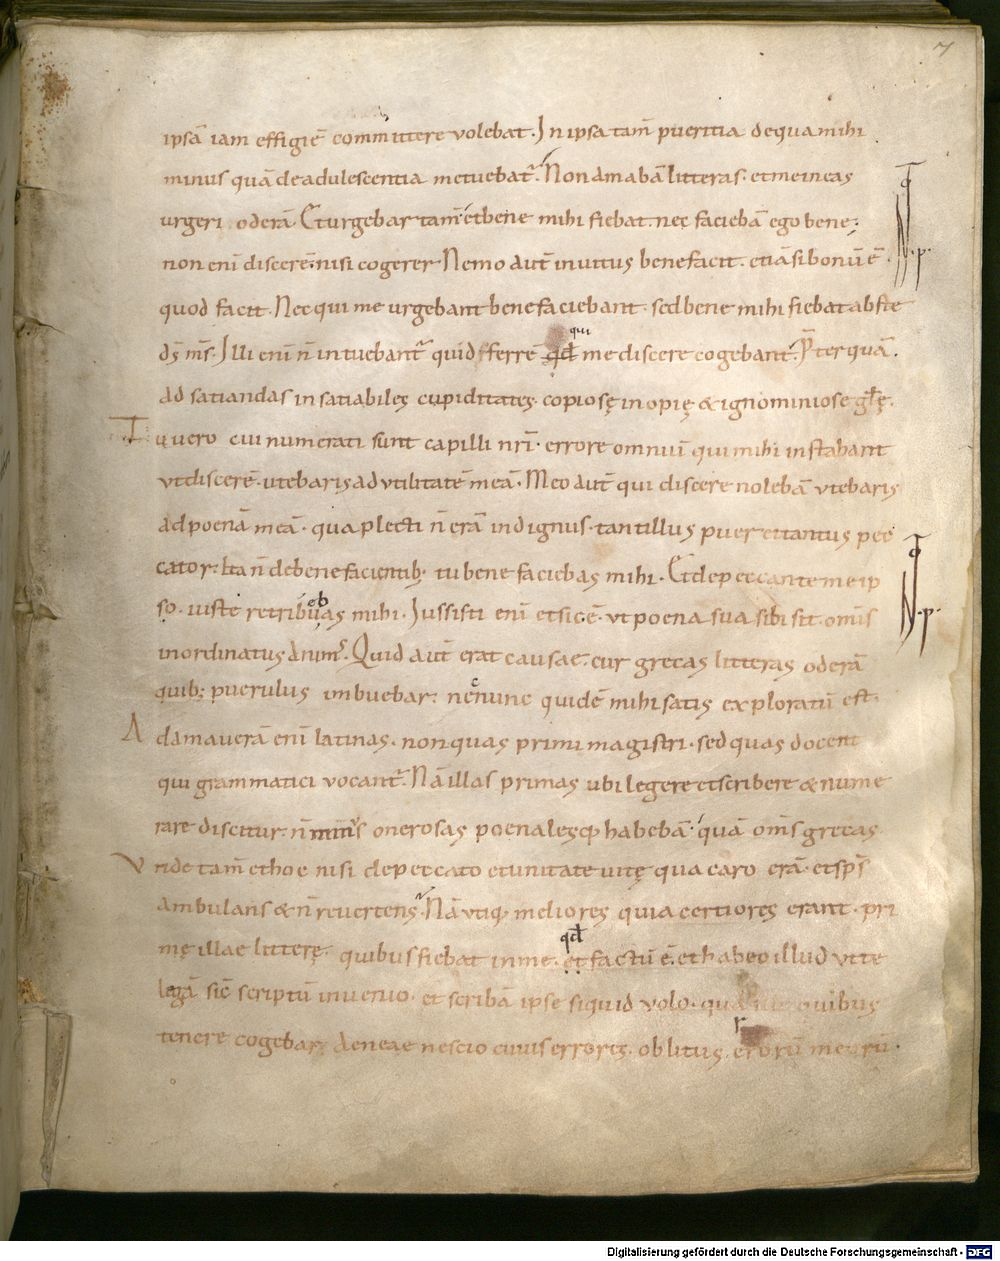 7
ipsā iam effigiē committere volebat. In ipsa tam̄ pueritia de qua mihi
minus quā de adulescentia metuebat᷑. Non amabā litteras. et me in eas
urgeri oderā. Et urgebar tam̄. et bene mihi fiebat. nec faciebā ego bene;
non enī discerē. nisi cogerer. Nemo aut̄ invitus bene facit. etiā si bonū ē.
quod facit. Nec qui me urgebant bene faciebant. sed bene mihi fiebat abs te
ds̄ ms̄. Illi enī n̄ intuebant᷑ quid fferrē qd̄ me discere cogebant. Pr̄ter quā.
qui
ad satiandas insatiabiles cupiditates. copiosę inopię & ignominiose gl̄ę.
Tu vero cui numerati sunt capilli nr̄i. errore omniū qui mihi instabant
ut discerē. utebaris ad utilitatē meā. Meo aut̄ qui discere nolebā utebaris
ad poenā meā. qua plecti n̄ erā indignus. tantillus puer et tantus pec
cator. Ita n̄ de bene facientib; tu bene faciebas mihi. Et de peccante me ip
so. iuste retribuas mihi. Iussisti enī et sic ē. ut poena sua sibi sit. omīs
eb
inordinatus animꝰ. Quid aut̄ erat causae. cur grecas litteras oderā
quib; puerulus imbuebar. ne nunc quidē mihi satis exploratū est.
c
Adamaverā enī latinas. non quas primi magistri. sed quas docent
qui grammatici vocant᷑. Nā illas primas ubi legere et scribere & nume
rare discitur. n̄ minꝰ onerosas poenalesq; habebā. quā om̄s grecas.
Unde tam̄ et hoc nisi de peccato et vanitate vitę qua caro erā. et sps̄
ambulans & n̄ revertens. Nā utiq; meliores quia certiores erant. pri
mę illae litterę. quibus fiebat in me. et factū ē. et habeo illud ut te
qd̄
legā sic̄ scriptū invenio. et scribā ipse siquid volo. quā quibus
tenere cogebar. Aeneae nescio cuius errores. oblitus. erorū meorū.
r
N p.
N p.
Digitalisierung gefördert durch die Deutsche Forschungsgemeinschaft - DFG